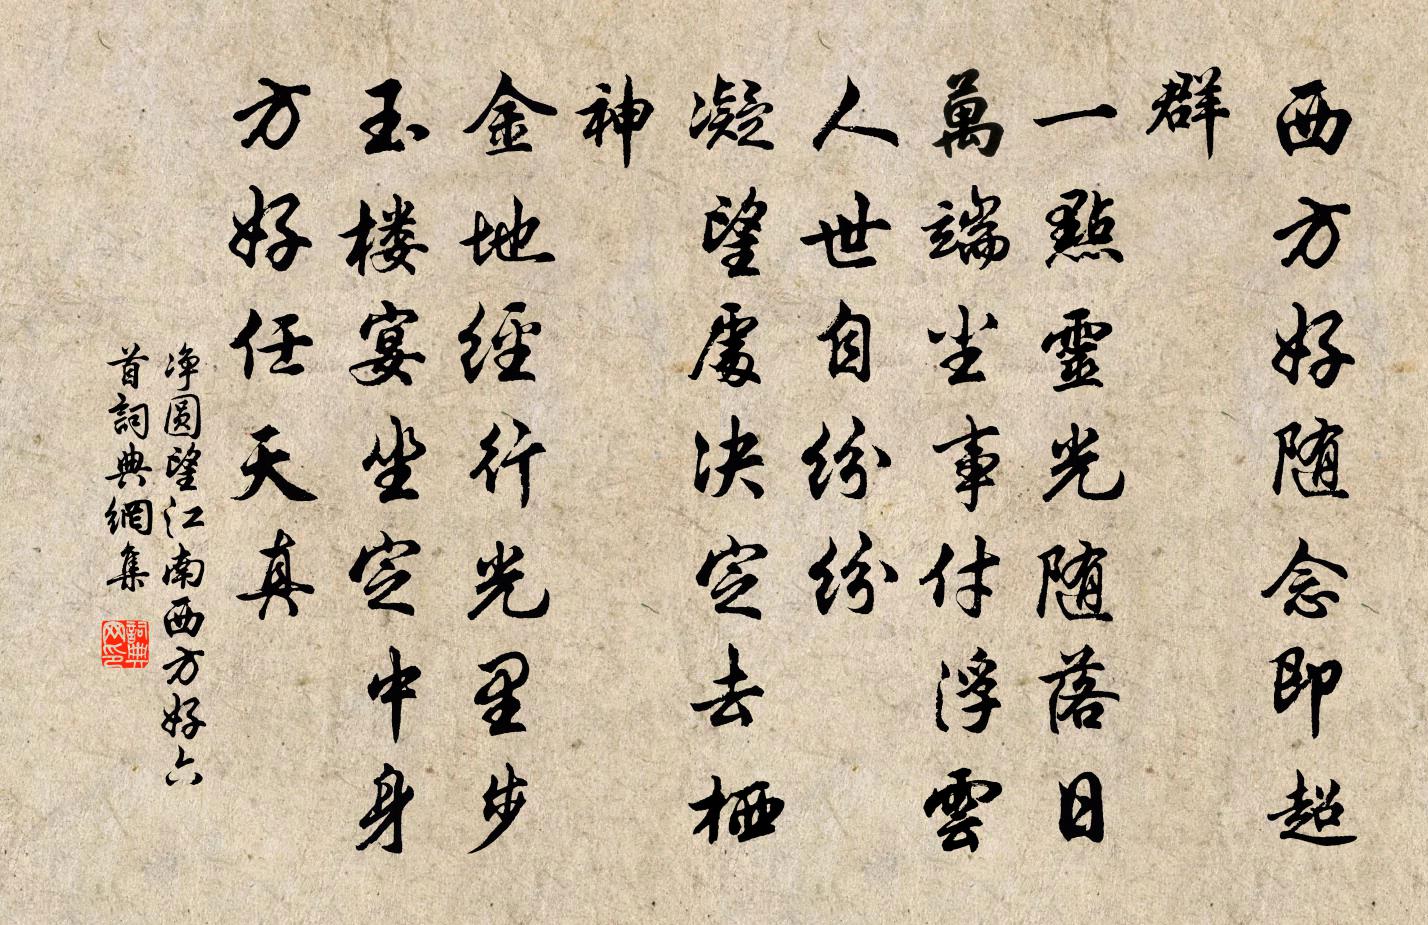 西方好随念即超
群
一點靈光随落日
萬端尘事付浮雲
人世自紛紛
凝望處決定去栖
神
金地經行光里步
玉楼宴坐定中身
方好任天真
净圆望江南西方好六
首詞典網集
詞典网印